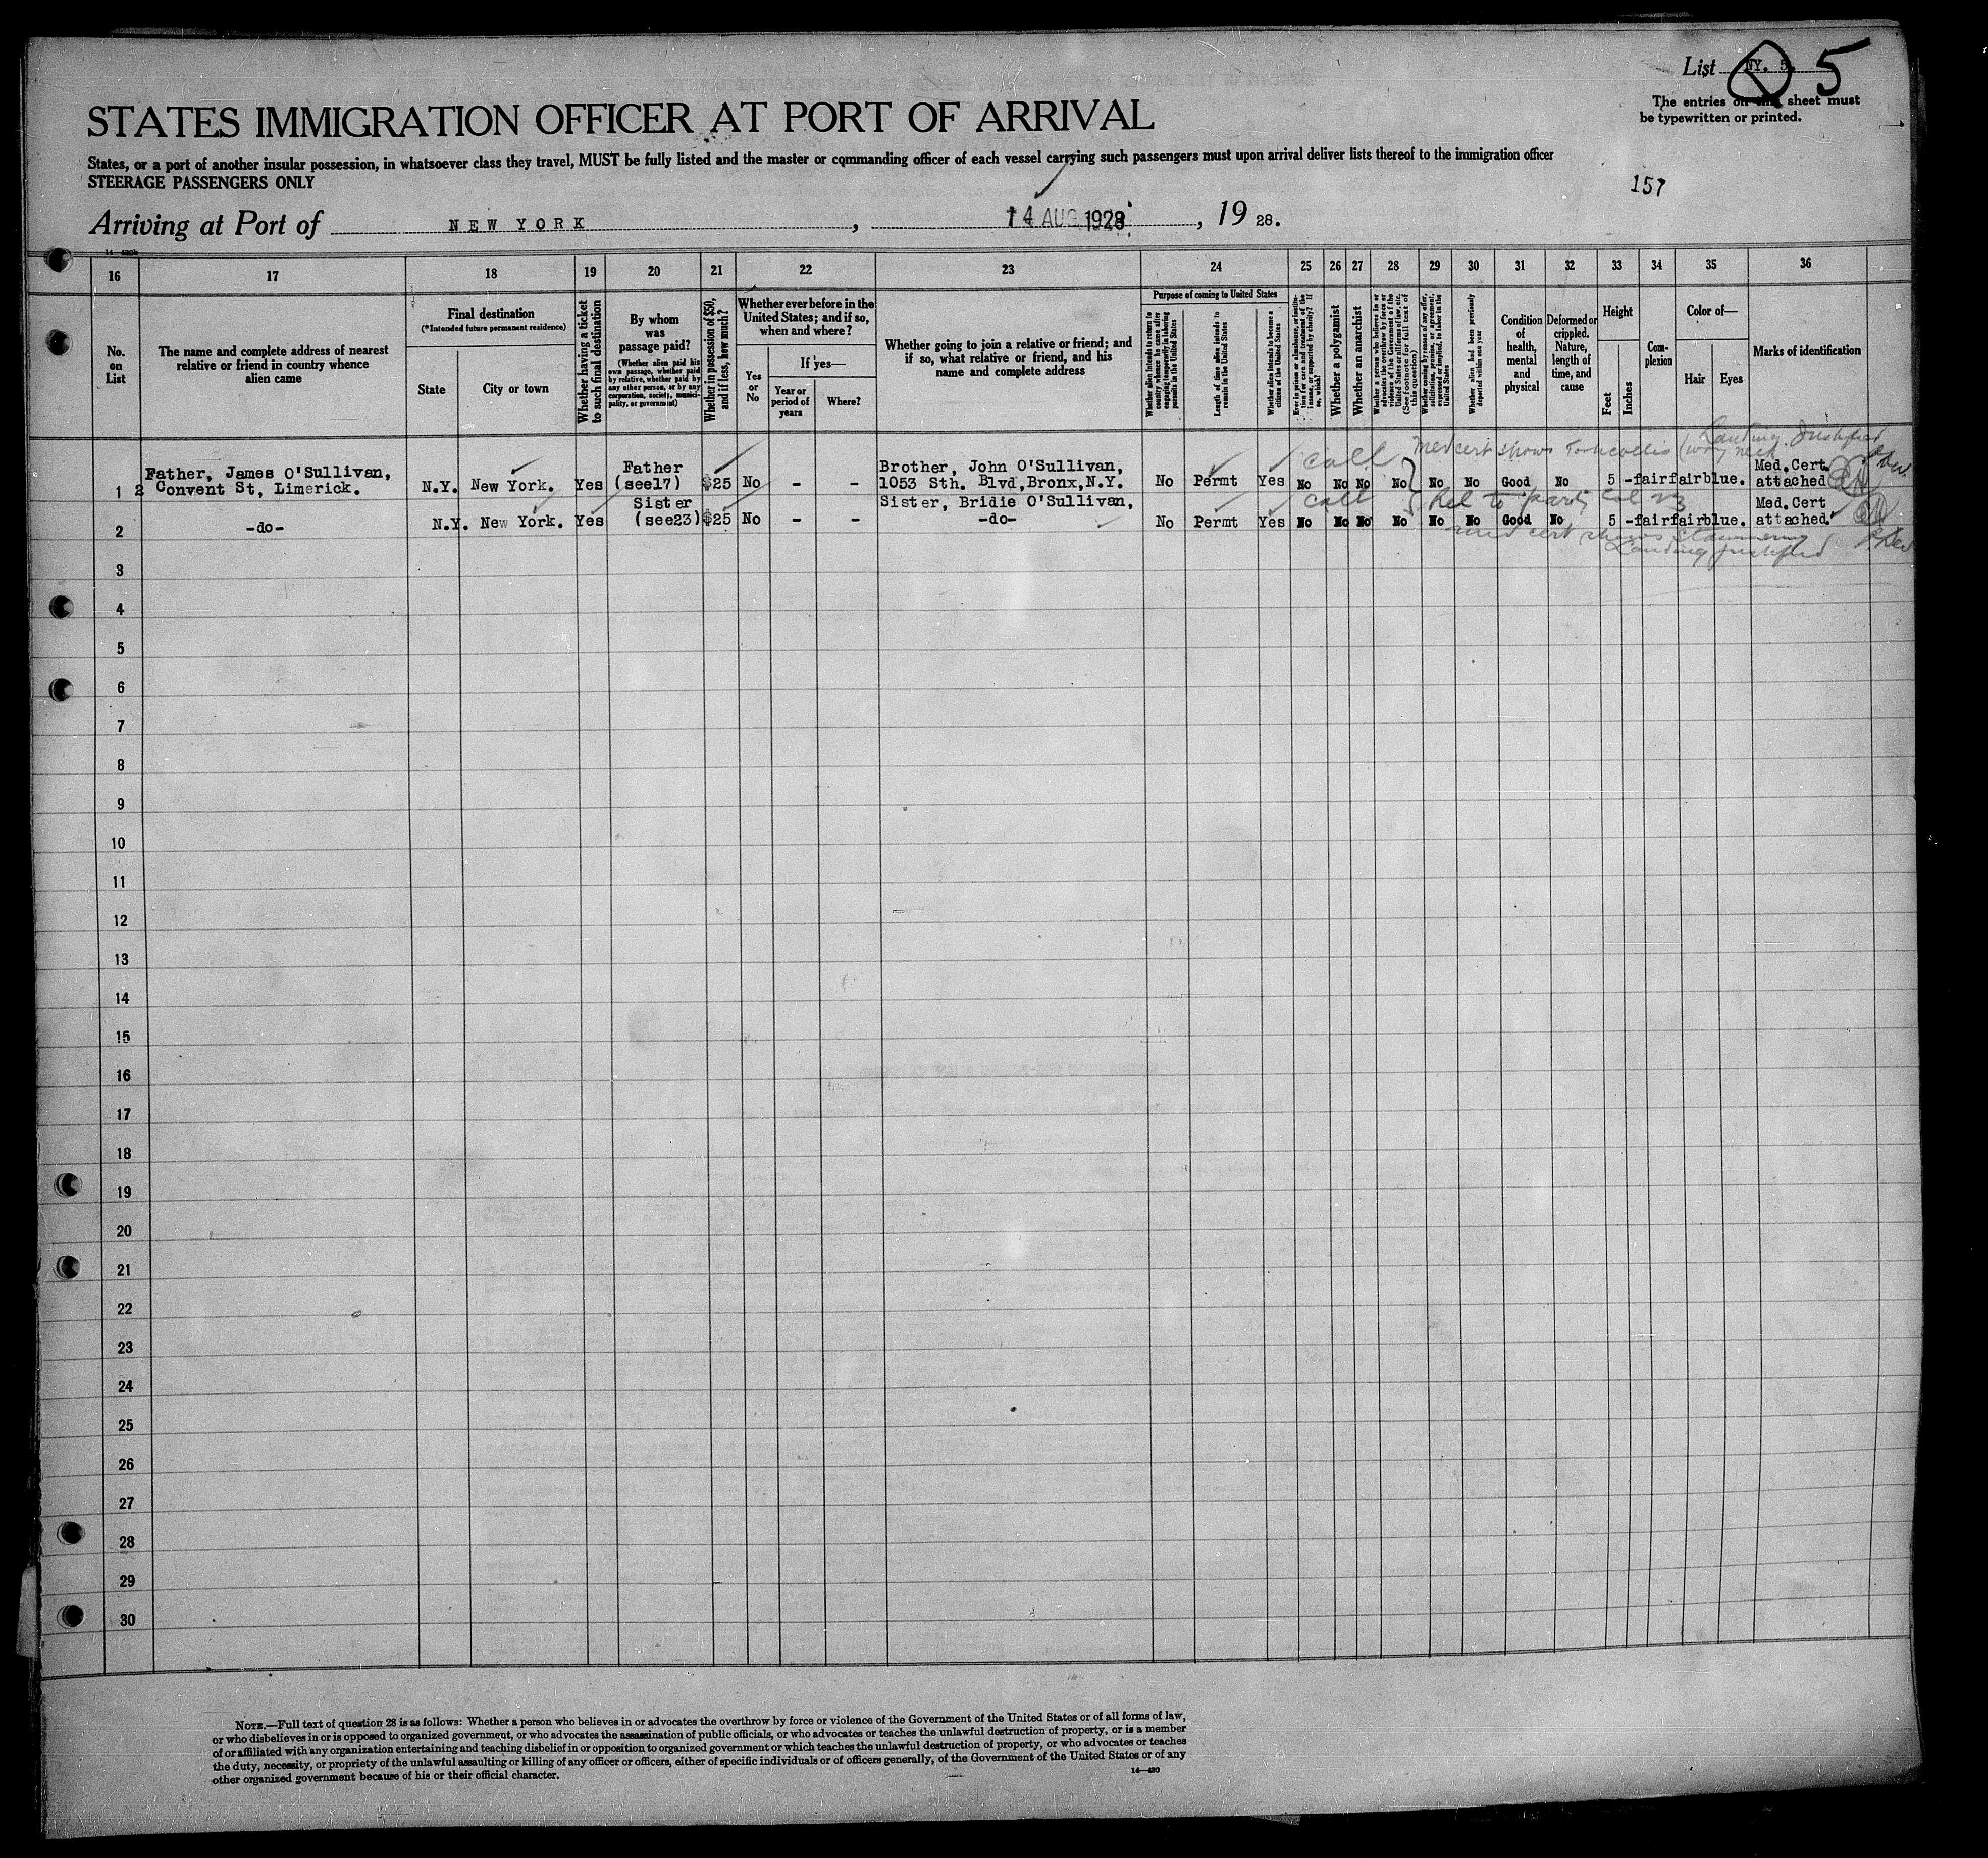 List NY. 5. 5
The entries on this sheet must
be typewritten or printed.
STATES IMMIGRATION OFFICER AT PORT OF ARRIVAL
States, or a port of another insular possession, in whatsoever class they travel, MUST be fully listed and the master or commanding officer of each vessel carrying such passengers must upon arrival deliver lists thereof to the immigration officer
STEERAGE PASSENGERS ONLY
157
Arriving at Port of NEW YORK, 14 AUG 1928, 19 28.
14—430b
16 17 18 19 20 21 22 23 24 25 26 27 28 29 30 31 32 33 34 35 36
No.
on
List
The name and complete address of nearest
relative or friend in country whence
alien came
Final destination
(*Intended future permanent residence)
State
City or town
Whether having a ticket
to such final destination
By whom
was
passage paid?
(Whether alien paid his
own passage, whether paid
by relative, whether paid by
any other person, or by any
corporation, society, munici-
pality, or government)
Whether in possession of $50,
and if less, how much?
Whether ever before in the
United States; and if so,
when and where?
Yes
or
No
If yes—
Year or
period of
years
Where?
Whether going to join a relative or friend; and
if so, what relative or friend, and his
name and complete address
Purpose of coming to United States
Whether alien intends to return to
country whence he came after
engaging temporarily in laboring
pursuits in the United States
Length of time alien intends to
remain in the United States
Whether alien intends to become a
citizen of the United States
Ever in prison or almshouse, or institu-
tion for care and treatment of the
insane, or supported by charity? If
so, which?
Whether a polygamist
Whether an anarchist
Whether a person who believes in or
advocates the overthrow by force or
violence of the Government of the
United States or all forms of law, etc.
(See footnote for full text of
this question)
Whether coming by reason of any offer,
solicitation, promise, or agreement,
expressed or implied, to labor in the
United States
Whether alien had been previously
deported within one year
Condition
of
health,
mental
and
physical
Deformed or
crippled.
Nature,
length of
time, and
cause
Height
Feet
Inches
Com-
plexion
Color of—
Hair
Eyes
Marks of identification
Landing Justified
call Med cert shows Torticollis (wry neck
Father, James O'Sullivan, Father Brother, John O'Sullivan, Med.Cert.
1 2 Convent St, Limerick. N.Y. New York. Yes (see17) $25 No - - 1053 Sth. Blvd,Bronx,N.Y. No Permt Yes No No No No No No Good No 5 - fair fair blue. attached
call Rel to party Col 23
Sister Sister, Bridie O'Sullivan, Med.Cert
2 -do- N.Y. New York. Yes (see23) $25 No - - -do- No Permt Yes No No No No No No Good No 5 - fair fair blue. attached.
med cert shows stammering
Landing justified
3
4
5
6
7
8
9
10
11
12
13
14
15
16
17
18
19
20
21
22
23
24
25
26
27
28
29
30
NOTE.—Full text of question 28 is as follows: Whether a person who believes in or advocates the overthrow by force or violence of the Government of the United States or of all forms of law,
or who disbelieves in or is opposed to organized government, or who advocates the assassination of public officials, or who advocates or teaches the unlawful destruction of property, or is a member
of or affiliated with any organization entertaining and teaching disbelief in or opposition to organized government or which teaches the unlawful destruction of property, or who advocates or teaches
the duty, necessity, or propriety of the unlawful assaulting or killing of any officer or officers, either of specific individuals or of officers generally, of the Government of the United States or of any
other organized government because of his or their official character.
14—430